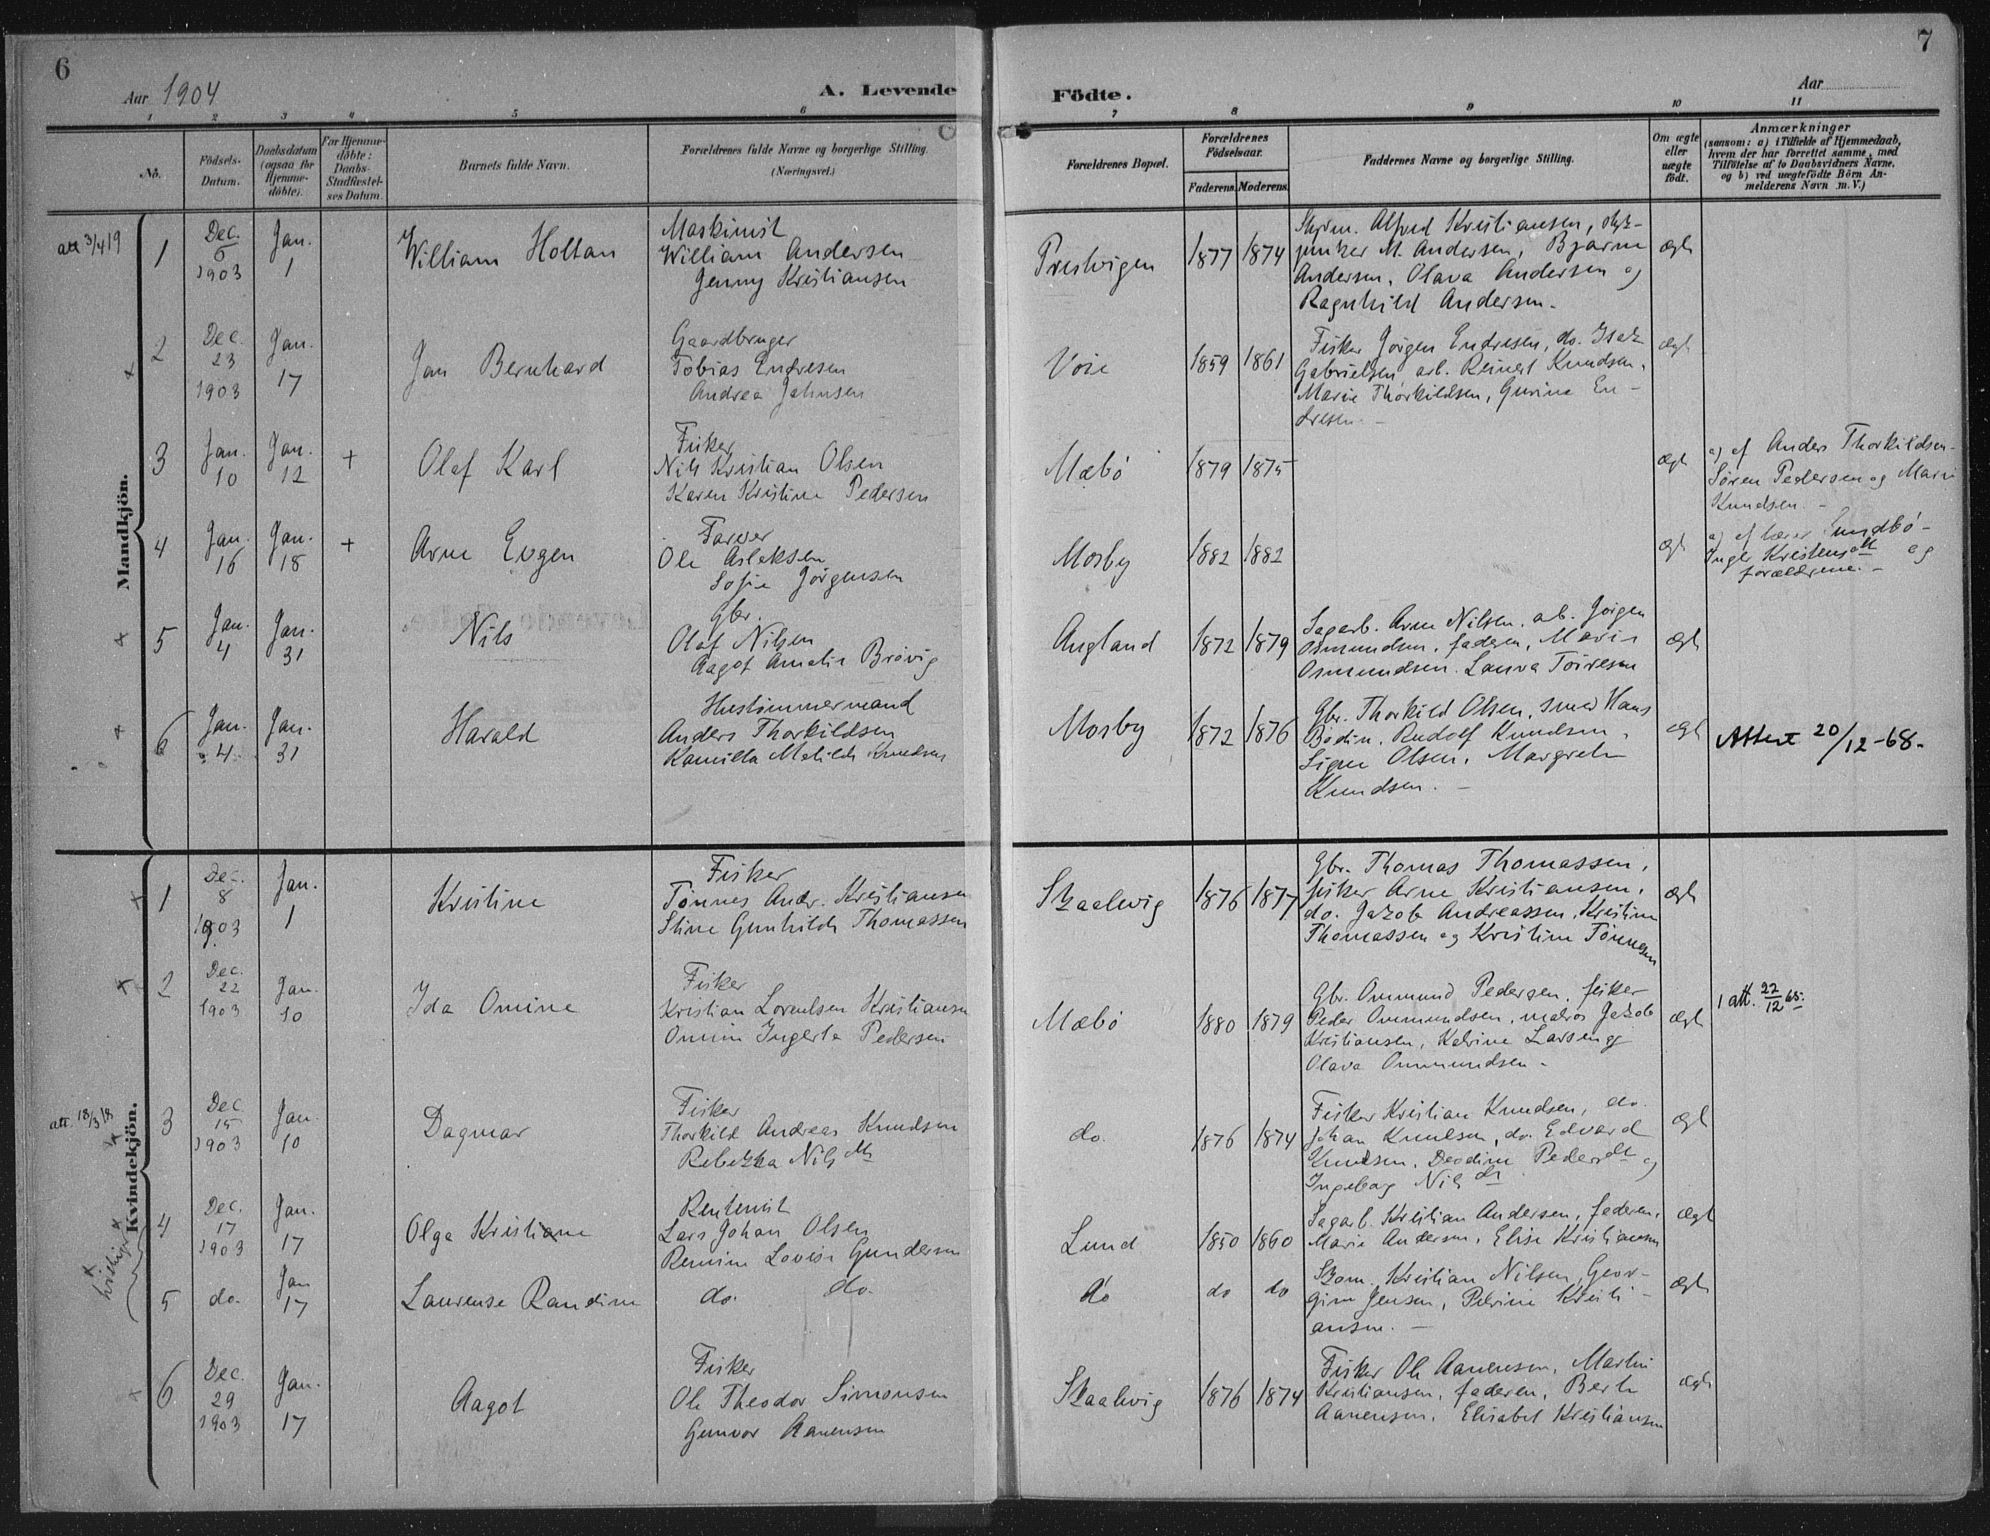 6
Aar 1904
A. Levende
Födte.
Aar
7
1 2 3 4 5 6 7 8 9 10 11
No.
Födsels-Datum.
Daabsdatum (ogsaa for Hjemme-döbte).
For Hjemme-döbte: Daabs-Stadfæstel-ses Datum.
Barnets fulde Navn.
Forældrenes fulde Navne og borgerlige Stilling.
(Næringsvei.)
Forældrenes Bopæl.
Forældrenes Födselsaar.
Faderens. Moderens.
Faddernes Navne og borgerlige Stilling.
Om ægte eller uægte födt.
Anmærkninger
(saasom: a) i Tilfælde af Hjemmedaab, hvem der har forrettet samme, med Tilföielse af to Daabsvidners Navne, og b) ved uægtefödte Börn Anmelderens Navn m. V.)
Mandkjön.
att 3/4 19
1
Dec. 6 1903
Jan. 1
William Holtan
Maskinist
William Andersen
Jenny Kristiansen
Prestvigen
1877 1874
Styrm. Alfred Kristiansen,
M. Andersen, Bjarne
Andersen, Olava Andersen og
Ragnhild Andersen.
ægt
2
Dec. 23 1903
Jan. 17
Jan Bernhard
Gaardbruger
Tobias Endresen
Andrea Jahnsen
Voie
1859 1861
Fisker Jörgen Endresen, do. Isak
Gabrielsen, arb. Reinert Knudsen,
Marie Thorkildsen, Gurine En-
dresen. -
ægt
3
Jan. 10
Jan. 12
+
Olaf Karl
Fisker
Nils Kristian Olsen
Karen Kristine Pedersen
Mæbö
1879 1875
ægt
a) af Anders Thorkildsen-
Sören Pedersen og Marie
Knudsen. -
4
Jan. 16
Jan. 18
+
Arne Evgen
Farver
Ole Aslaksen
Sofie Jörgensen
Mosby
1882 1882
ægt
a) af lærer Sundbö-
Inger Kristensdtt og
forældrene. -
5
Jan. 4
Jan. 31
Nils
Gbr.
Olaf Nilsen
Aagot Amalie Brövig
Augland
1872 1879
Sagarb. Arne Nilsen, arb. Jörgen
Osmundsen, faderen, Marie
Osmundsen, Laura Toresen
ægt
6
Jan. 4.
Jan. 31
Harald
Hustömmermand
Anders Thorkildsen
Kamilla Matilde Knudsen
Mosby
1872 1876
Gbr. Thorkild Olsen, smed Hans
Bodin, Rudolf Knudsen,
Signe Olsen, Margrete
Knudsen. -
ægt
Attest 20/12-68.
Kvindekjön.
1
Dec. 8 1903
Jan. 1
Kristine
Fisker
Tönnes Andr. Kristiansen
Stine Gunhilde Thomassen
Skaalevig
1876 1877
Gbr. Thomas Thomassen,
fisker Arne Kristiansen,
do. Jakob Andreassen, Kristine
Thomassen og Kristine Tönnesen
ægt
2
Dec. 22 1903
Jan. 10
Ida Omine
Fisker
Kristian Lorentsen Kristiansen
Omine Ingerte Pedersen
Mæbö
1880 1879
Gbr. Ommund Pedersen, fisker
Peder Ommundsen, matros Jakob
Kristiansen, Katrine Larsen og
Olava Ommundsen -
ægt
1 att. 22/12 65.
att. 18/3 18
3
Dec 15 1903
Jan. 10
Dagmar
Fisker
Thorkild Andreas Knudsen
Rebekka Nilsdtt
do.
1876 1874
Fisker Kristian Knudsen, do.
Johan Knudsen, do. Edvard
Knudsen, Deodine Pedersdtt og
Ingeborg Nilsdtt
ægt
tvillinger
4
Dec. 17 1903
Jan. 17
Olga Kristiane
Rentenist
Lars Johan Olsen
Remine Lovise Gundersen
Lund
1850 1860
Sagarb. Kristian Andersen, faderen,
Marie Andersen, Elise Kristiansen
ægt
5
do.
Jan 17
Laurense Randine
do. do.
do
do do
Skom. Kristian Nilsen, Geor-
gine Jensen, Petrine Kristi-
ansen. -
ægt
6
Dec. 29 1903
Jan. 17
Aagot
Fisker
Ole Theodor Simonsen
Gunvor Aanensen
Skaalevig
1876 1874
Fisker Ole Aanensen, Martin
Kristiansen, faderen, Berte
Aanensen, Elisabet Kristiansen
ægt